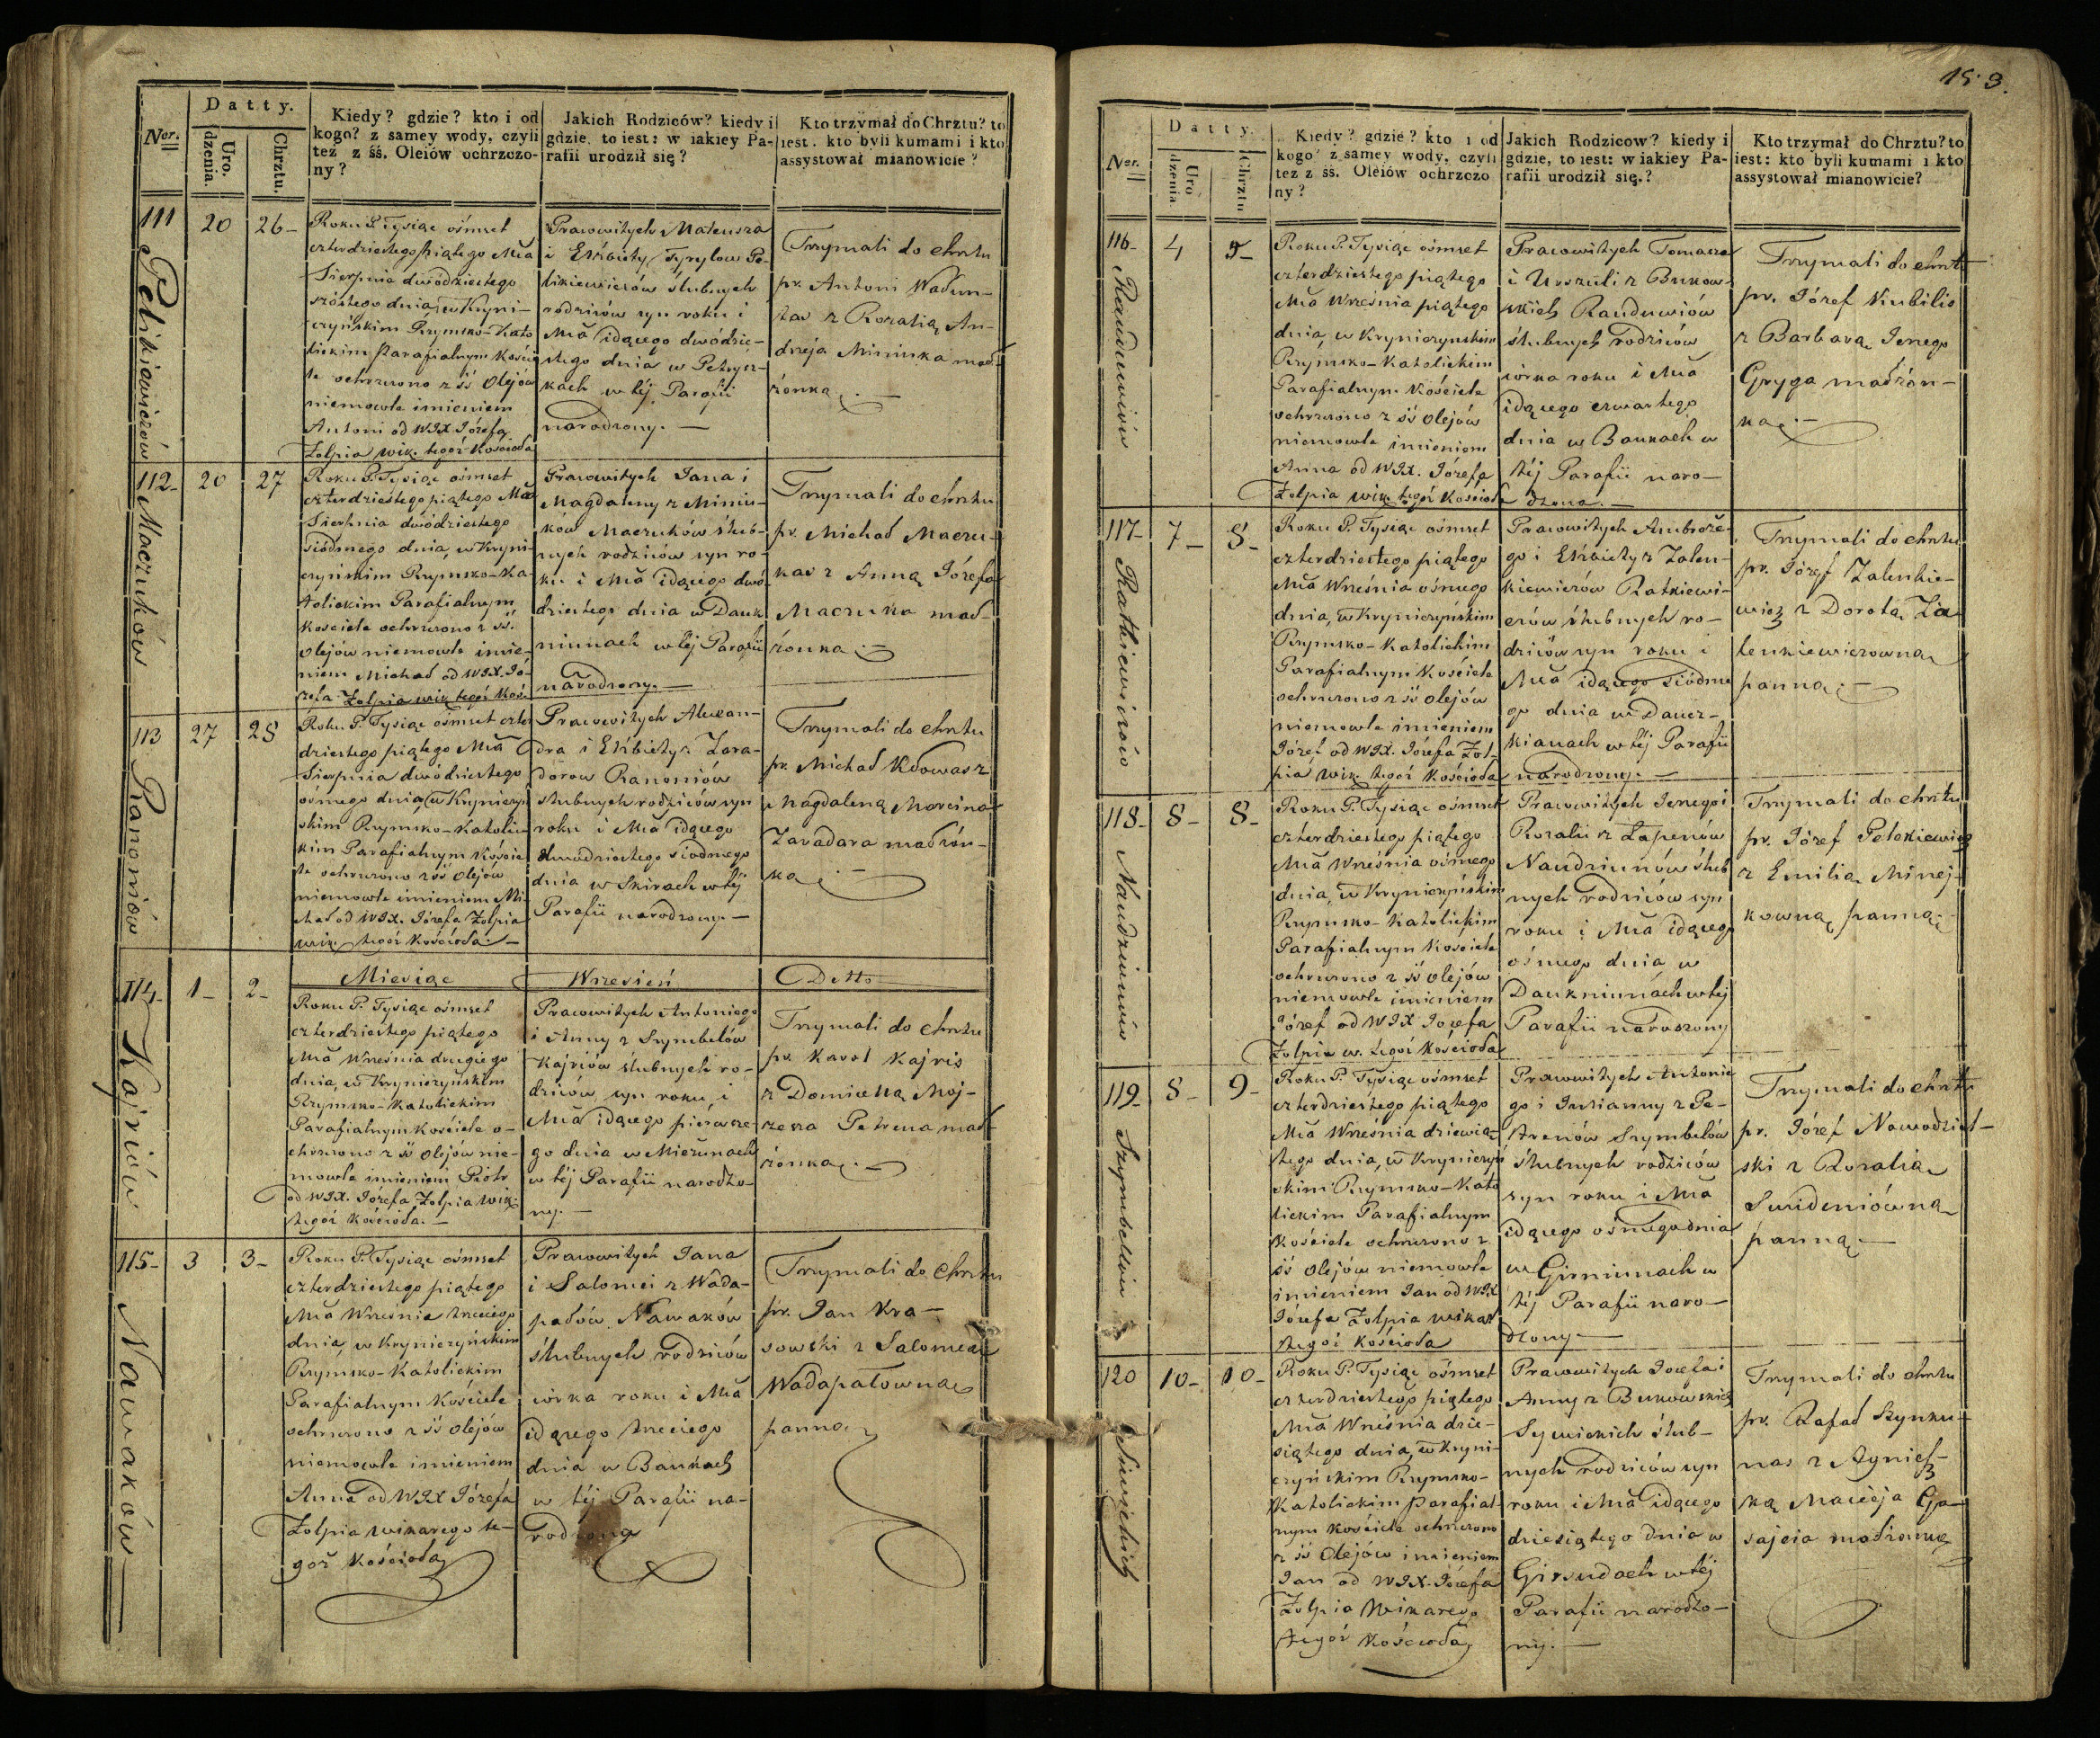 Ner.
Datty.
Uro. dzenia.
Chrztu.
Kiedy? gdzie? kto i od
kogo? z samey wody, czyli
też z śś. Oleiów ochrzczo-
ny?
Jakich Rodziców? kiedy i
gdzie, to iest: w iakiey Pa-
rafii urodził się?
Kto trzymał do Chrztu? to
iest. kto byli kumami i kto
assystował mianowicie?
111
20
26-
Roku P. Tysiąc ośmset
czterdziestego piątego Mca
Sierpnia dwódziestego
szóstego dnia, w Kryni-
czyńskim Rzymsko-Kato
lickim Parafialnym Koście
le ochrzczono z śś Olejów
niemowle imieniem
Antoni od WJX Józefa
Zołpia wik. tegoż Kościoła
Pracowitych Mateusza
i Elżbiety
likiewiczów ślubnych
rodziców syn roku i
Mca idącego dwódzie-
stego dnia w Petrysz-
kach w téj Parafii
narodzony.-
Trzymali do chrztu
pr. Antoni
z Rozalią An-
drzeja Miniuka mał-
żonką.-
112-
Maczuków
20
27
Roku P. Tysiąc ośmset
czterdziestego piątego Mca
Sierpnia dwódziestego
siódmego dnia, w Kryni
czyńskim Rzymsko-Ka-
tolickim Parafialnym
Kościele ochrzczono z śś.
olejów niemowle imie-
niem Michał od WJX. Jó-
zefa Zołpia wik. tegoż Koś.
Pracowitych Jana i
Magdaleny z Miniu-
ków Maczuków ślub-
nych rodziców syn ro-
ku i Mca idącego dwó
dziestego dnia w Dauk
niunach w téj Parafii
narodzony.-
Trzymali do chrztu
pr. Michał Maczu-
kas z Anną Józefa
Maczuka mał-
żonką.-
113
Ranoniów
27
28
Roku P. Tysiąc ośmset czter
dziestego piątego Mca
Sierpnia dwódziestego
ósmego dnia, w Kryniczyń
skim Rzymsko-Katolic
kim Parafialnym Koście
le ochrzczono z śś olejów
niemowle imieniem Mi-
chał od WJX. Józefa Zołpia
wik. tegoż Kościoła.-
Pracowitych Alexan-
dra i Elżbiety z Zawa-
dorow Ranoniów
ślubnych rodziców syn
roku i Mca idącego
dwudziestego siodmego
dnia w Skirach w téj
Parafii narodzony.-
Trzymali do chrztu
pr. Michał Kłowas z
Magdaleną Marcina
Zavadara małżon-
ką.-
Miesiąc
Wrzesień
Detto
114-
Kajriów
1-
2-
Roku P. Tysiąc ośmset
czterdziestego piątego
Mca Września drugiego
dnia, w Kryniczyńskim
Rzymsko-Katolickim
Parafialnym Kościele o-
chrzczono z śś olejów nie-
mowle imieniem Piotr
od WJX. Józefa Zołpia wik.
tegoż Kościoła.-
Pracowitych Antoniego
i Anny z Szymbelów
Kajriów ślubnych ro-
dziców syn roku i
Mca idącego pierwsze-
go dnia w Mieżunach
w téj Parafii narodzo-
ny.-
Trzymali do chrztu
pr. Karol Kajris
z Domicellą Moj-
żesza Petrena mał
żonką.-
115-
Nawaków
3
3-
Roku P. Tysiąc ośmset
czterdziestego piątego
Mca Września trzeciego
dnia, w Kryniczyńskim
Rzymsko-Katolickim
Parafialnym Kościele
ochrzczono z śś olejów
niemowle imieniem
Anna od WJX Józefa
Zołpia wikarego te-
goż Kościoła
Pracowitych Jana
i Salomei z Wada-
pałów Nawaków
ślubnych rodziców
córka roku i Mca
idącego trzeciego
dnia w Baukach
w téj Parafii na-
rodzona
Trzymali do Chrztu
pr. Jan Kra-
sowski z Salomeą
Wadapałowną
panną
153.
Ner.
Datty.
Uro dzenia.
Chrztu
Kiedy? gdzie? kto i od
kogo? z samey wody, czyli
też z śś. Oleiów ochrzczo
ny?
Jakich Rodzicow? kiedy i
gdzie, to iest: w iakiey Pa-
rafii urodził się.?
Kto trzymał do Chrztu? to
iest: kto byli kumami i kto
assystował mianowicie?
116-
Rauduwiów
4
5-
Roku P. Tysiąc ośmset
czterdziestego piątego
Mca Września piątego
dnia, w Kryniczyńskim
Rzymsko-Katolickim
Parafialnym Kościele
ochrzczono z śś Olejów
niemowle imieniem
Anna od WJX. Józefa
Zołpia wik. tegoż Kościoła
Pracowitych Tomasza
i Urszuli z Bukow-
skich Rauduwiów
ślubnych rodziców
córka roku i Mca
idącego czwartego
dnia w Baukach w
téj Parafii naro-
dzona.-
Trzymali do chrztu
pr. Józef Kubilis
z Barbarą Jerzego
Gryga małżon-
ką.-
117-
Ratkiewiczów
7-
8-
Roku P. Tysiąc ośmset
czterdziestego piątego
Mca Września ośmego
dnia, w Kryniczyńskim
Rzymsko-Katolickim
Parafialnym Kościele
ochrzczono z śś olejów
niemowle imieniem
Józef od WJX. Józefa Zoł-
pia, wik. tegoż Kościoła
Pracowitych Ambroże-
go i Elżbiety z Zalen-
kiewiczów Ratkiewi-
czów ślubnych ro-
dziców syn roku i
Mca idącego siódme
go dnia w Daucz-
kianach w téj Parafii
narodzony.-
Trzymali do chrztu
pr. Józef Zalenkie-
wicz z Dorotą Za
lenkiewiczowną
panną.-
118-
Naudziunów
8-
8-
Roku P. Tysiąc ośmset
czterdziestego piątego
Mca Września ośmego
dnia, w Kryniczyńskim
Rzymsko-Katolickim
Parafialnym Kościele
ochrzczono z śś olejów
niemowle imieniem
Józef od WJX Józefa
Zołpia w. tegoż Kościoła
Pracowitych Jerzego i
Rozalii z Łapenów
Naudziunów ślub
nych rodziców syn
roku i Mca idącego
ósmego dnia w
Daukniunach w téj
Parafii narodzony
Trzymali do chrztu
pr. Józef Petokiewicz
z Emilią Minej-
kowną panną.
119-
Szymbelów
8-
9-
Roku P. Tysiąc ośmset
czterdziestego piątego
Mca Września dziewią-
tego dnia, w Kryniczyń
skim Rzymsko-Kato
lickim Parafialnym
Kościele ochrzczono z
śś olejów niemowle
imieniem Jan od WJX
Józefa Zołpia wikar
tegoż Kościoła
Pracowitych Antonie
go i Julianny z Pe-
trenów Szymbelów
ślubnych rodziców
syn roku i Mca
idącego ośmego dnia
w Girniunach w
téj Parafii naro-
dzony-
Trzymali do chrztu
pr. Józef Nawodzial-
ski z Rozalią
Swideniówną
panną-
120
10-
10-
Roku P. Tysiąc ośmset
czterdziestego piątego
Mca Września dzie-
siątego dnia, w Kryni-
czyńskim Rzymsko-
Katolickim Parafial-
nym Kościele ochrzczono
z śś Olejów imieniem
Jan od WJX. Józefa
Zołpia Wikarego
tegoż Kościoła
Pracowitych Józefa i
Anny z Bukowskich
ślub-
nych rodziców syn
roku i Mca idącego
dziesiątego dnia w
Girsudach w téj
Parafii narodzo-
ny.-
Trzymali do chrztu
pr. Rafał Szynku-
nas z Agniesz-
ką Macieja Ga-
sajcia małżonką